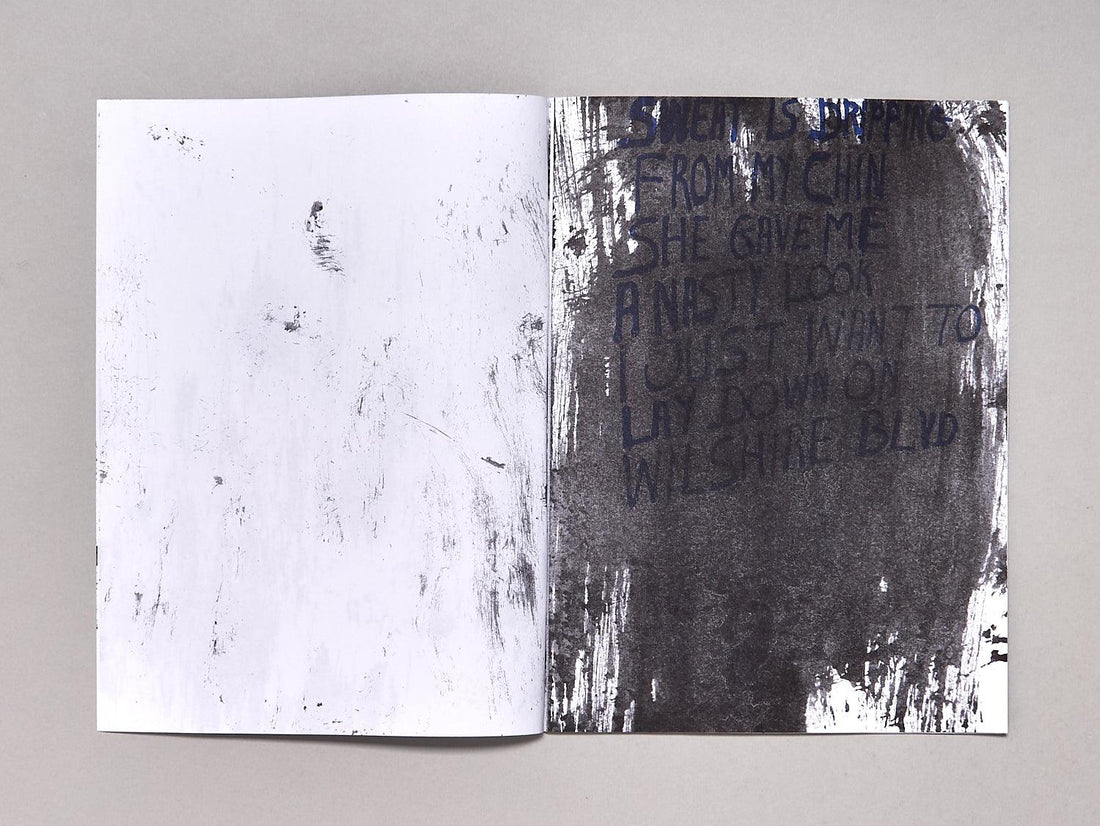 SWEAT IS DRIPPING
FROM MY CHIN
SHE GAVE ME
A NASTY LOOK
I JUST WANT TO
LAY DOWN ON
WILSHIRE BLVD